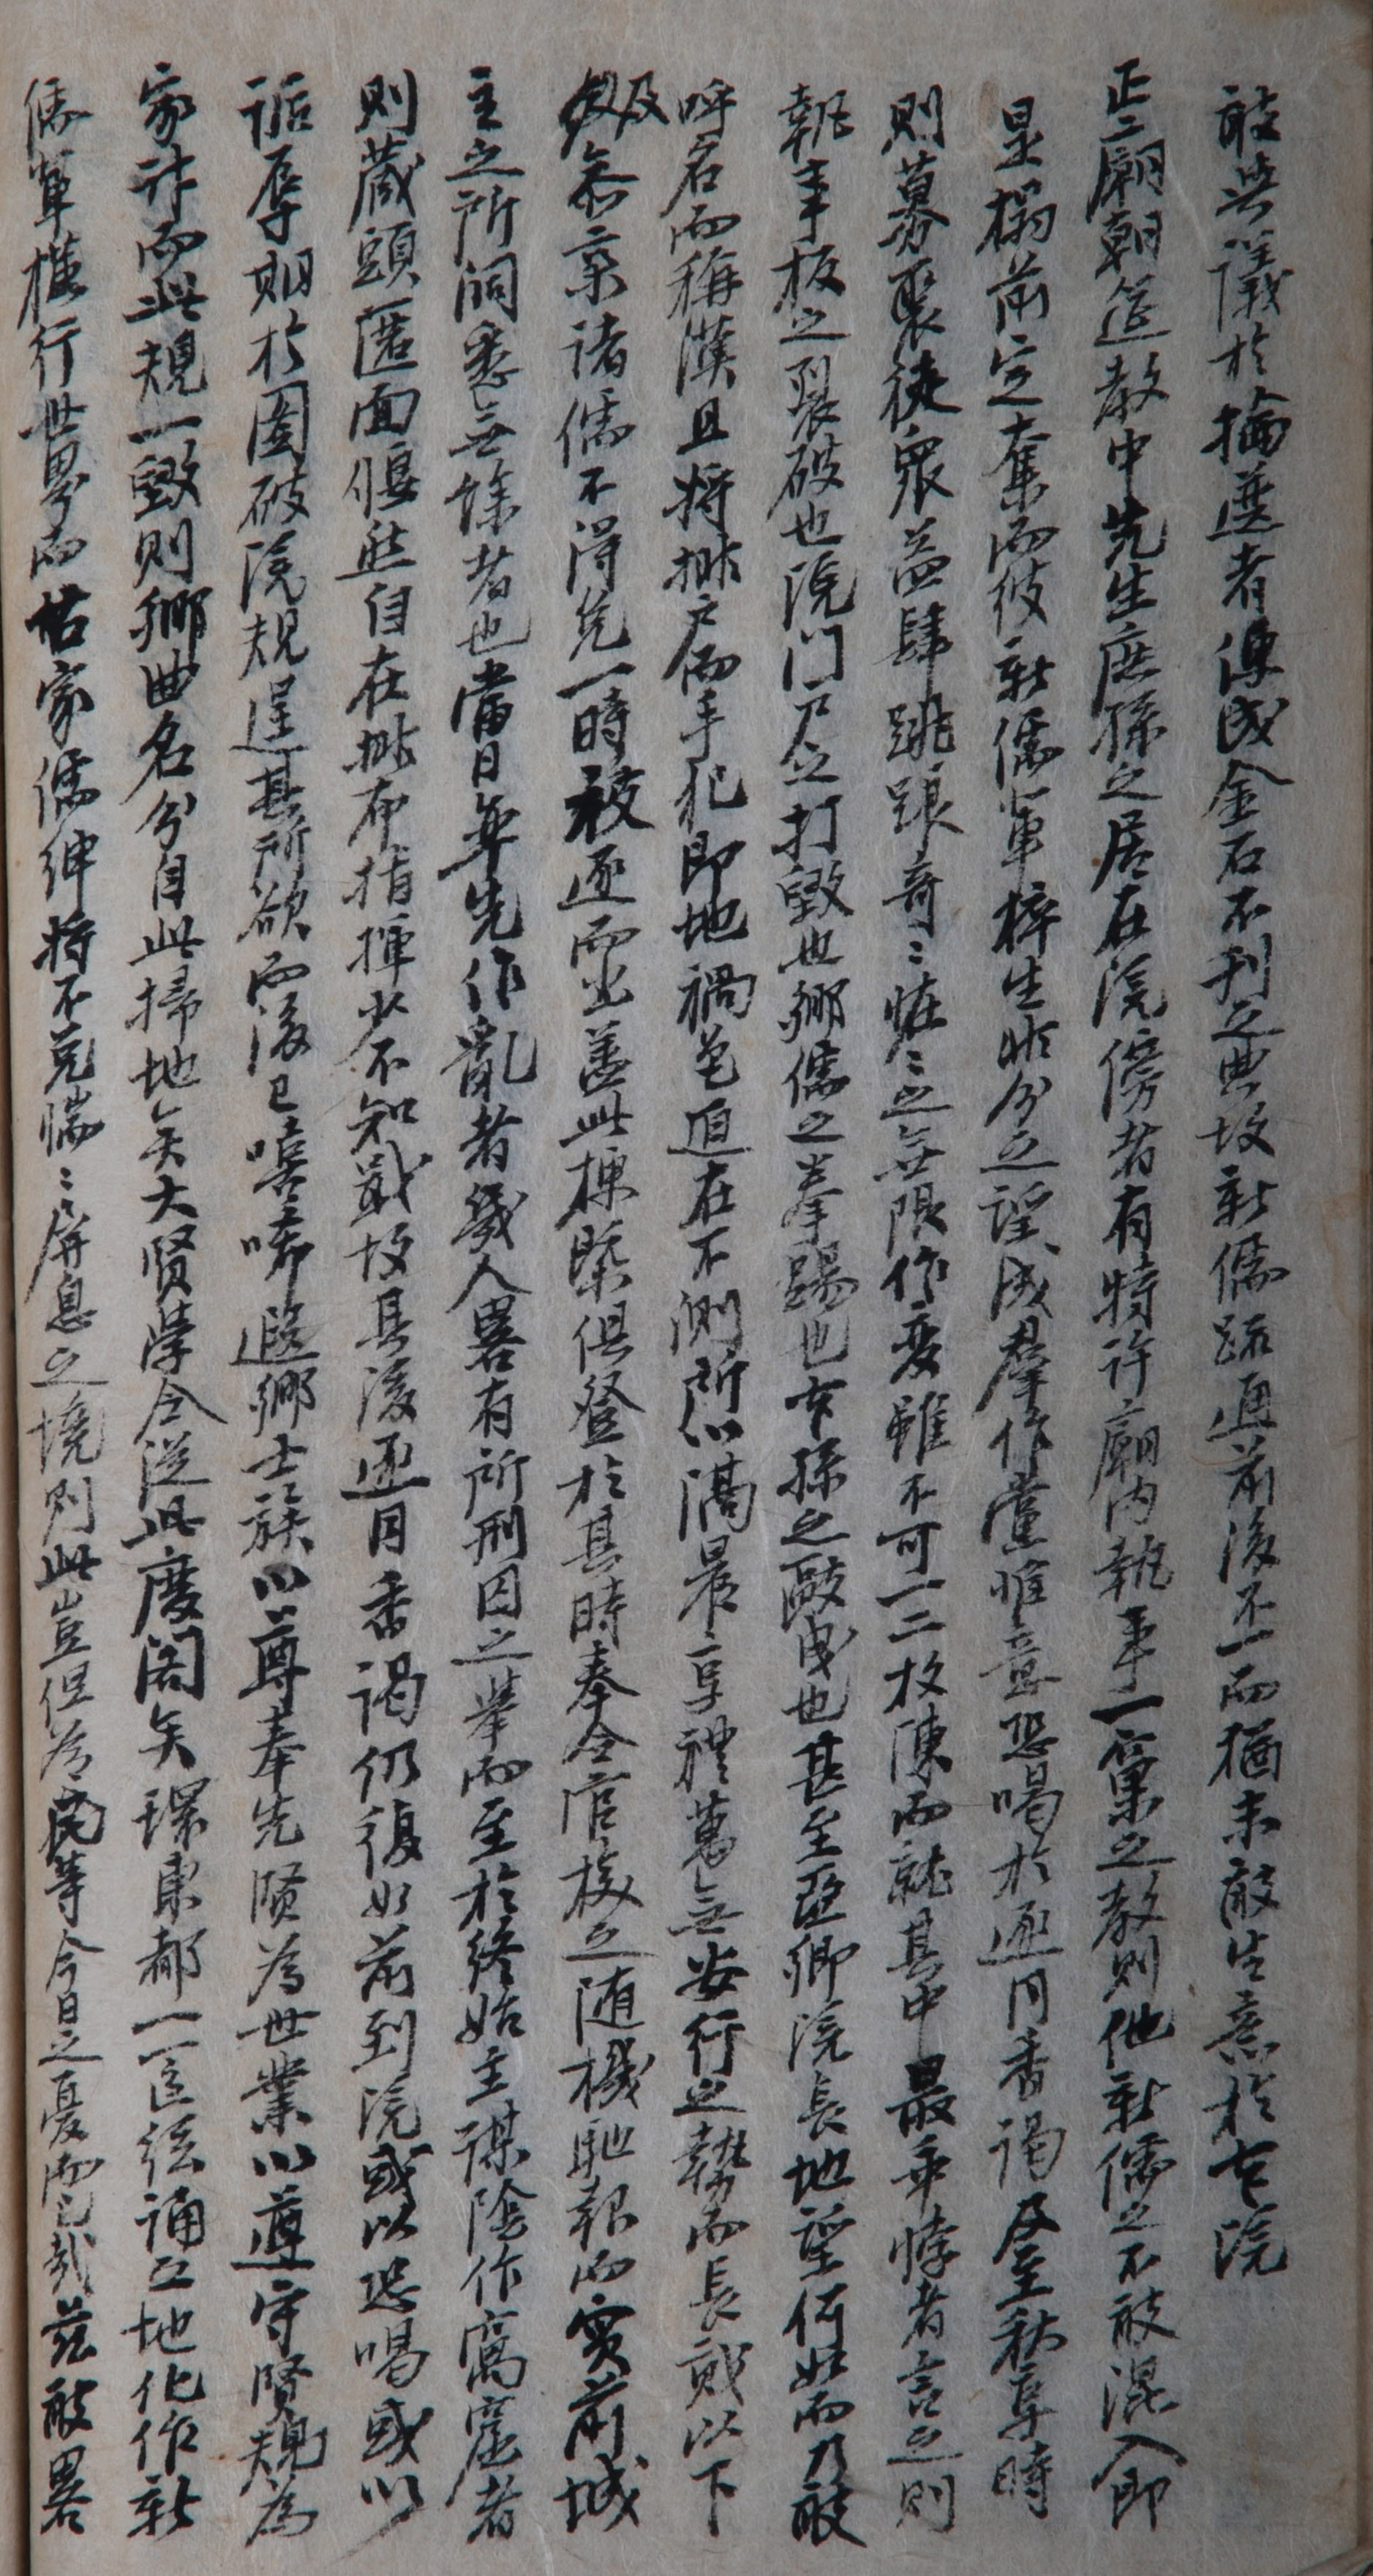 敢與議於揷薦者傳成金石不刊之典故新儒疏通前後不一而猶未敢生意於右院
正廟朝筵敎中先生庶孫之居在院傍者有特許廟內執事一窠之敎則他新儒之不敢混入卽
是榻前定奪而彼新儒輩梓生非分之望成羣作黨惟意恐喝於逐月香謁及至秋享時
則募聚徒衆益肆跳踉奇〻怪〻之無限作變雖不可一二枚陳而就其中最乖悖者言之則
執事板之裂破也院門戶之打毁也鄉儒之拳踢也本孫之敺曳也甚至亞卿院長地望何如而乃敢
呼名而稱漢且將排戶而手犯卽地禍色迫在不測所以滿晨享禮萬無安行之勢而長貳以下
及忝窠諸儒不得免一時被逐而出盖此梗槩俱登於其時奉令官校之随機馳報而實前城
主之所洞悉無餘者也當日率先作亂者幾人畧有所刑囚之擧而至於終始主謀陰作窩窟者
則藏頭匿面偃然自在排布指揮少不知戢故其後逐月香謁仍復如前到院或以恐喝或以
詬辱期於圖破院規逞其所欲而後已噫嘻遐鄉士族以尊奉先賢爲世業以遵守賢規爲
家計而此規一毁則鄉曲名分自此掃地矣大賢學令從此廢閣矣環東都一區絃誦之地化作新
儒輩橫行世界而古家儒紳將不免惴〻屏息之境則此豈但爲民等今日之憂而已哉玆敢畧